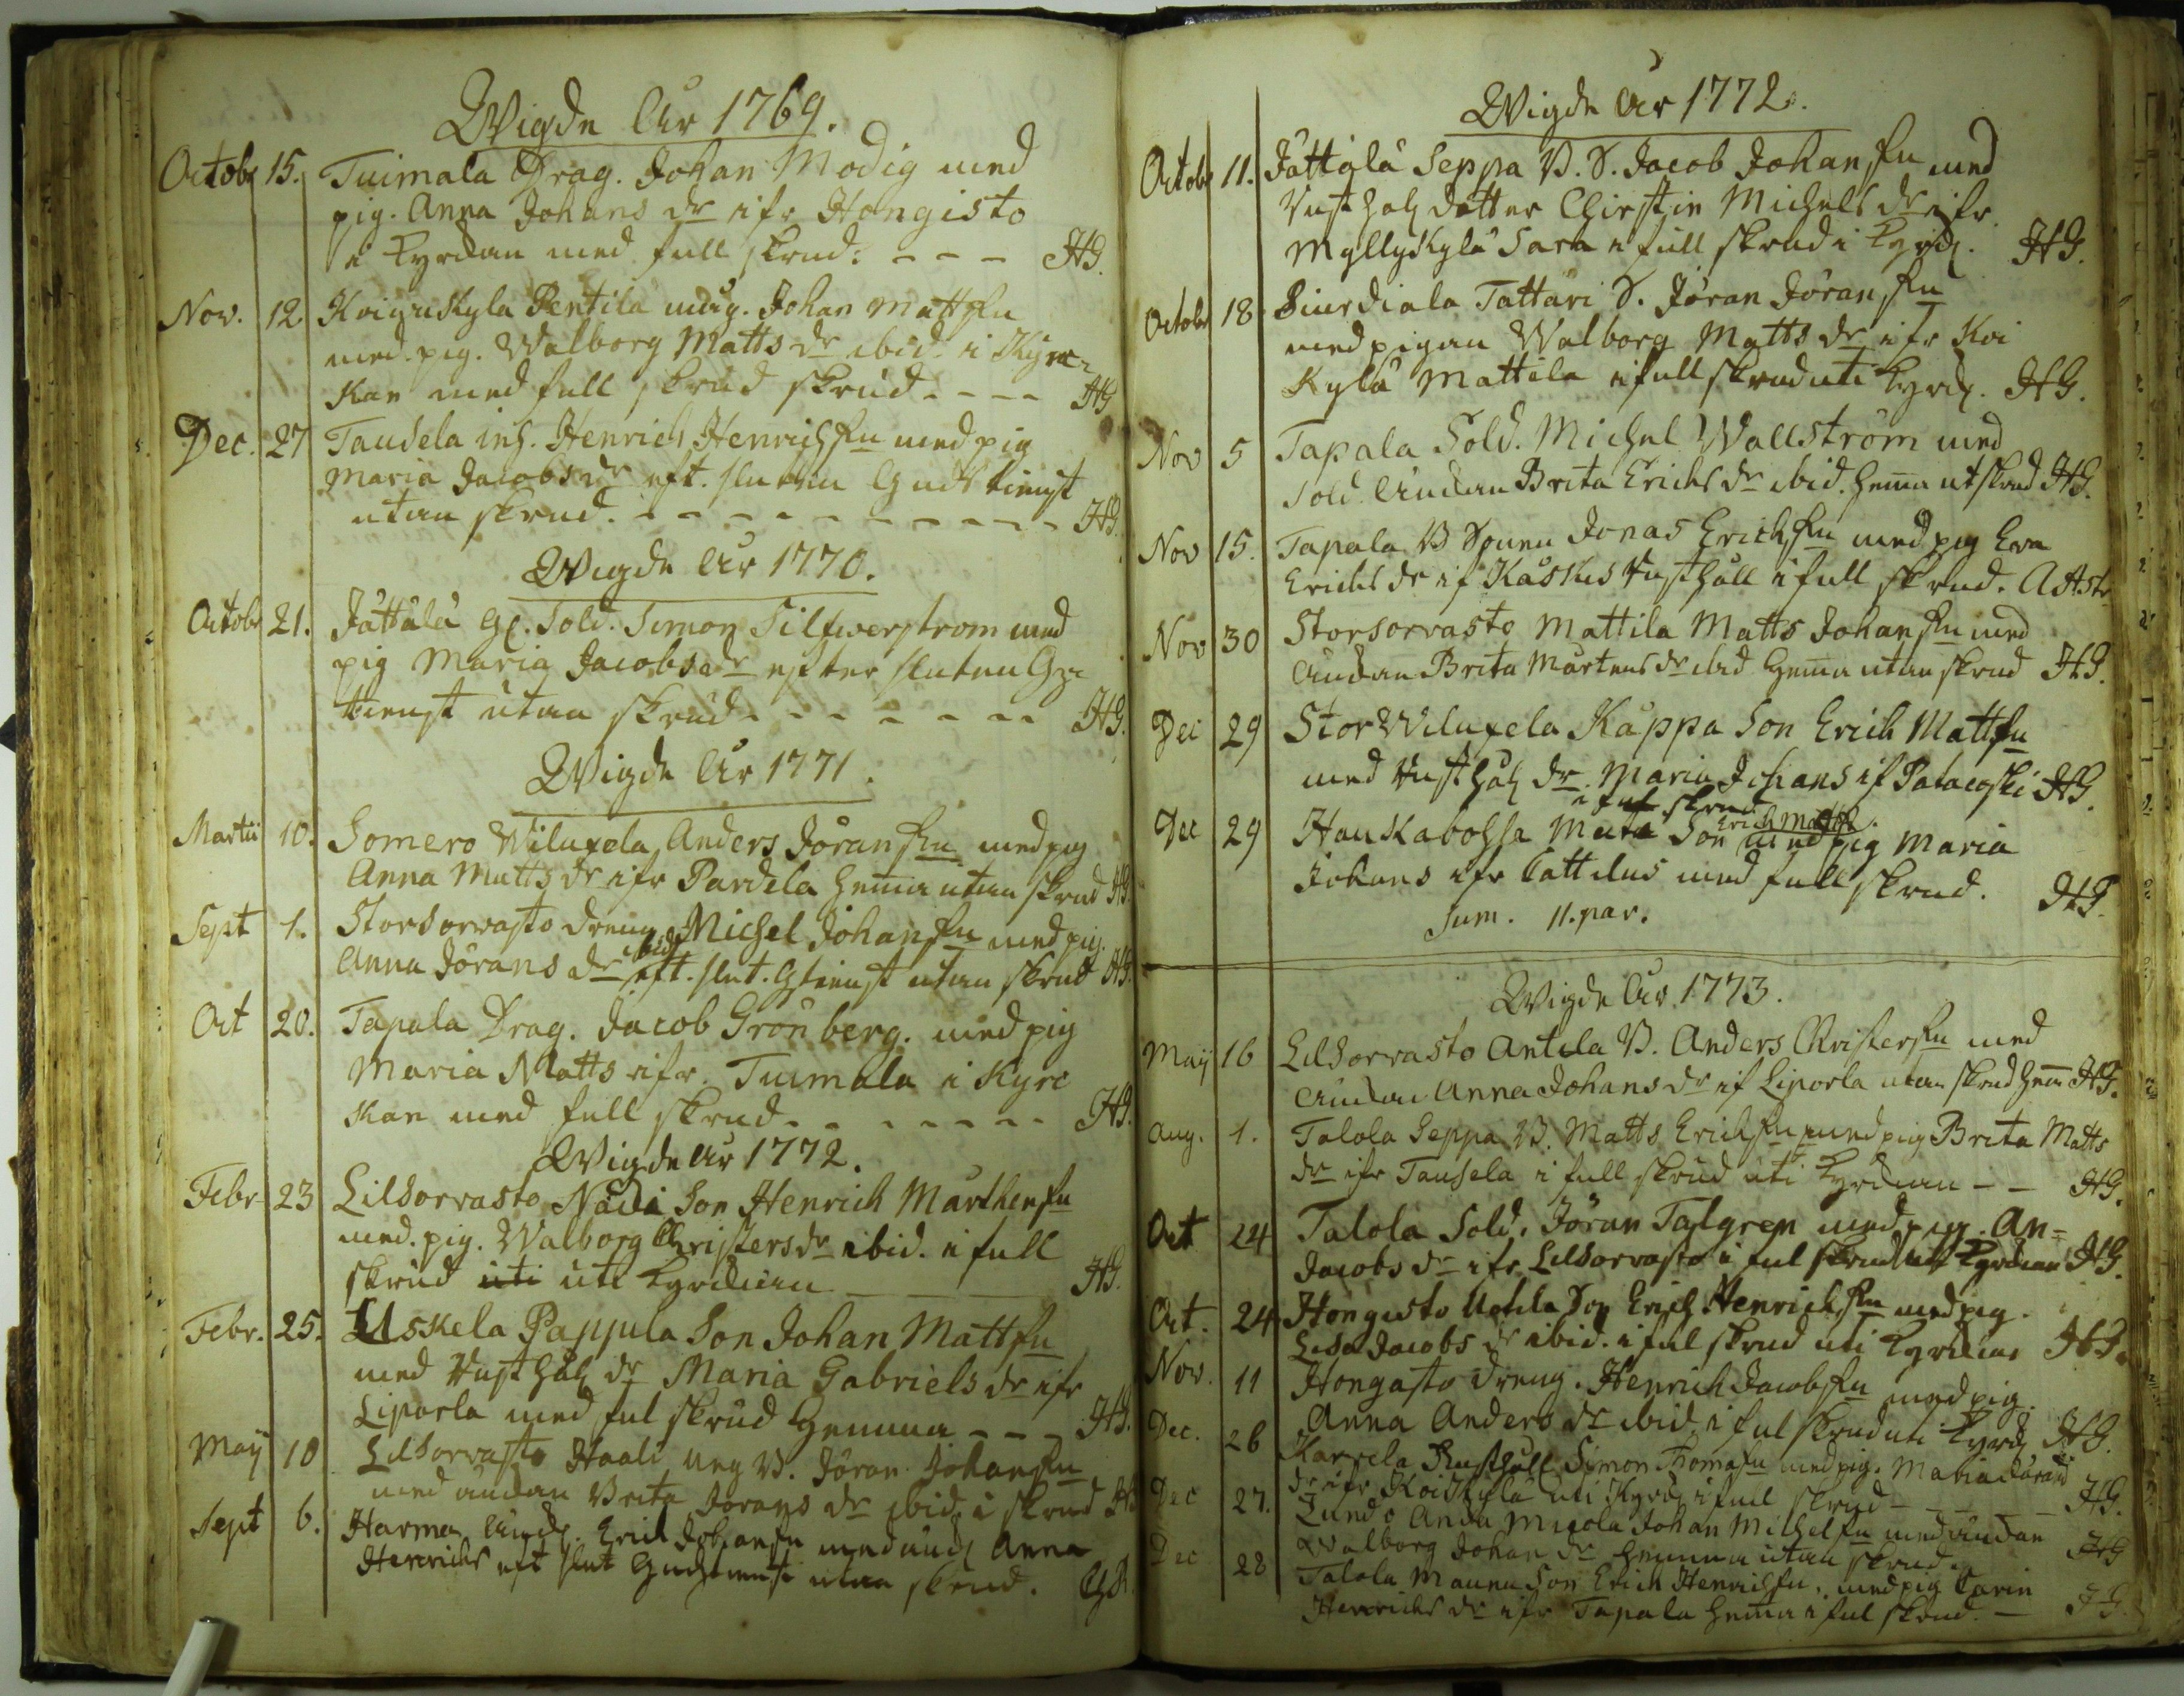 Wigde År 1769.
Octobr 15. Tuimala Drag. Johan Modig med
pig. Anna Johans dr ifr Hongisto
i Kyrckan med full skrud. - - - HG.
Nov. 12 Koiguskyla Pentila måg. Johan Mattsn
med pig. Walborg Matts dr ibid. i Kyrc-
kan med full skrud skrud. - - - HG
Dec. 27 Taudela inh. Henrich Henrichsn med pig
Maria Jacobsdr eft. sluten Gudstienst
utan skrud. - - - HG.
Wigde År 1770.
Octobr 21. Jättälä Sold. Simon Silfwerstrom med
pig Maria Jacobsdr efter sluten G
tienst utan skrud - - - HG.
Wigde År 1771.
Martii 10. Somero Wiluxela Anders Jöransn med pig
Anna Matts dr ifr Pardela hema utan skrud HG.
Sept 1. Storsorvasto dreng Michel Johansn med pig.
Anna Jörans dr ibid eft. slut. Gtienst utan skrud HG.
Oct 20. Tapala Drag. Jacob Grönberg. med pig
Maria Matts ifr. Tuimala i Kyrc
kan med full skrud - - - HG.
Wigde År 1772.
Febr 23 Lilsorvasto Nädi Son Henrich Mårthensn
med. pig. Walborg Christersdr ibid. i full
skrud uti uti Kyrckian HG.
Febr. 25. Uskela Pappula Son Johan Mattsn
med Rusthåll dr Maria Gabriels dr ifr
Liporla med ful skrud hemma - - - HG.
Maÿ 10 Lilsorvasto Haali ung B. Jöran Johansn
med änckan Brita Jörans dr ibid. i skrud HG
Sept 6. Harma Erich Johansn med Anna
Henrichs eft slut Gudstienst utan skrud.
Wigde År 1772.
Octobr 11. Jättälä Seppä B. S. Jacob Johansn med
Rusthåll dotter Chirstin Michels dr ifr
Myllykylä Sara i full skrud i Kyrck. HG.
Octobr 18 Tattari S. Jöran Jöransn
med pigan Walborg Matts dr ifr Koi
kylä Mattila i full skrud uti Kyrck. HG.
Nov 5 Tapala Sold. Michel Wallström med
Sold. Änckan Brita Erichs dr ibid. hema ut skrud HG.
Nov 15. Tapala B Sonen Jonas Erichsn med pig Eva
Erichs dr if Kåskis Rusthåll i full skrud.
Nov 30 Storsorvasto Mattila Matts Johansn med
Änckan Brita Mårtensdr ibid hema utan skrud HG.
Dec 29 Stor Wiluxela Käppä Son Erich Mattsn
med Rusthåll dr. Maria Johans if Patacoski HG.
i full skrud
Dec 29 Hauskabohja Son Erich Mattss. med pig Maria
Johans ifr Cattelus med full skrud. HG.
Sum. 11. par.
Wigde År 1773.
Maÿ 16 Lilsorvasto Antila B. Anders Christersn med
änckan Anna Johansdr if Liporla utan skrud hem HG.
Aug. 1. Talola Seppä B. Matts Erichsn med pig Brita Matts
dr ifr Tausela i full skrud uti Kyrckian - - HG.
Oct 24 Talola Sold. Jöran Talgren med pig. An=
Jacobs dr ifr Lilsorvasto i ful skrud uti Kyrckian HG.
Oct. 24 Hongisto Uotila Son Erich Henrichsn med pig.
Lisa Jacobs dr ibid. i ful skrud uti Kyrckian HG.
Nov. 11 Hongasto dreng. Henrich Jacobsn med pig.
Anna Anders dr ibid. i ful skrud uti Kyrck HG.
Dec. 26 Karvela Rusthåll Simon Thomasn med pig. Maria Jörans
dr ifr Koikylä uti Kyrck i full skrud - - - HG.
Dec 27. Lundo Anda Mixola Johan Michelsn med änckan
Walborg Johan dr hemma utan skrud. HG
Dec 28 Talola Maunu Son Erich Henrichsn. med pig Carin
Henrichs dr ifr Tapala hema i ful skrud. - HG.